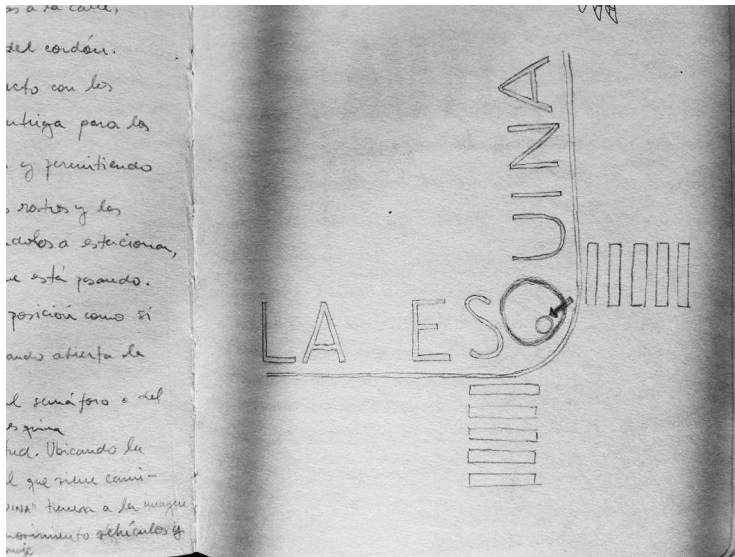 s a la calle,
del cordón.
acto con los
intriga para los
y permitiendo
rostros y los
a estacionar,
e está pasando.
posición como si
ando abierta la
el semáforo o del
esquina
tud. Ubicando la
l que viene cami-
INA" tienen a la
movimiento vehículos y
LA ESQUINA